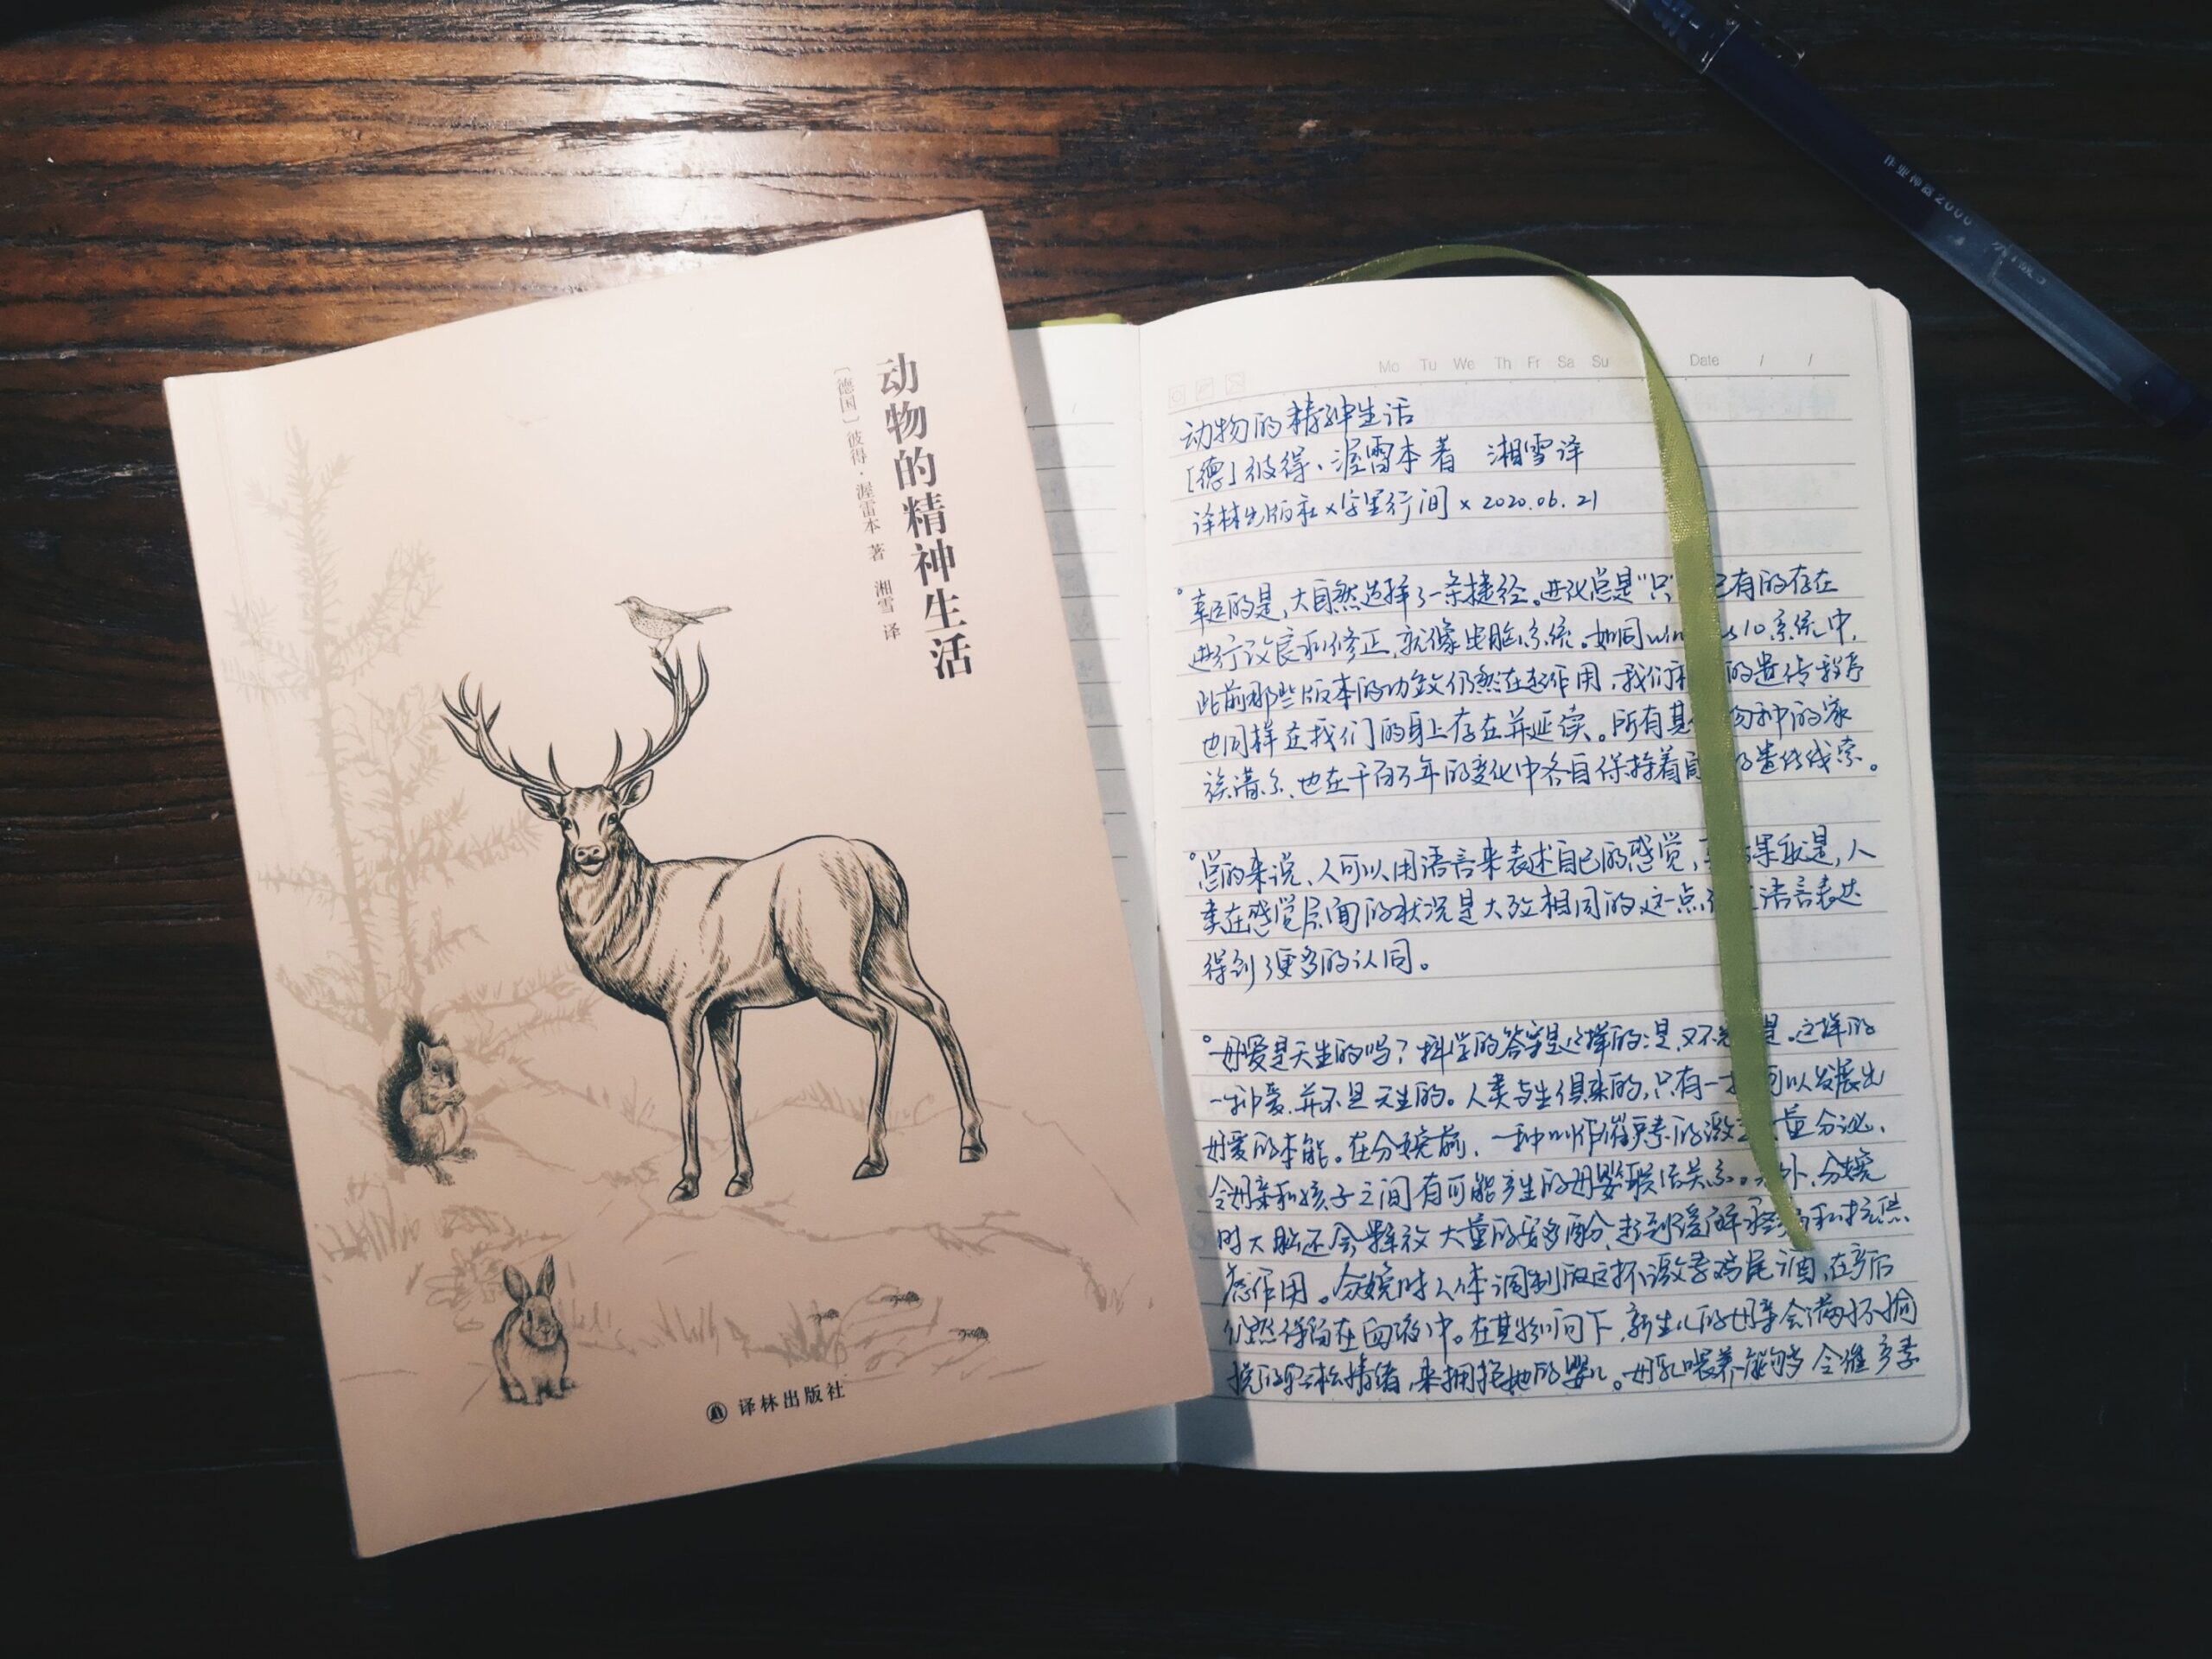 动物的精神生活
[德国] 彼得·渥雷本 著 湘雪 译
译林出版社
作业神器2000
Mo Tu We Th Fr Sa Su Date / /
动物的精神生活
[德]彼得、渥雷本 著 湘雪译
译林出版社×字里行间×2020.06.21
幸运的是,大自然选择了一条捷径。进化总是“只 已有的存在
进行改良和修正,就像电脑系统。如同win s10系统中,
此前那些版本的功效仍然在起作用,我们 的遗传程序
也同样在我们的身上存在并延续。所有其 物种的家
族谱系、也在千百万年的变化中各自保持着 的遗传线索。
总的来说、人可以用语言来表述自己的感觉, 果就是,人
类在感觉层面的状况是大致相同的这一点 语言表达
得到了更多的认同。
母爱是天生的吗?科学的答案是这样的:是,又不 是。这样的
一种爱,并不是天生的。人类与生俱来的,只有一 可以发展出
母爱的本能。在分娩前,一种叫作催产素的激 量分泌、
令母亲和孩子之间有可能产生的母婴联结关系。 外,分娩
时大脑还会释放大量的安多酚,起到缓解 和
感作用。分娩时人体调制的这杯激素鸡尾酒,在产后
仍然停留在血液中。在其影响下,新生儿的母亲会满怀愉
悦的 松情绪,来拥抱她的婴儿。母乳喂养能够令催产素